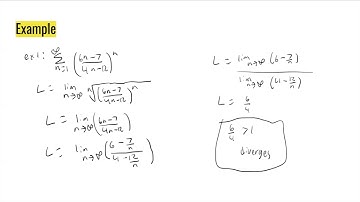 Example
ex1: ∞ Σ n=1 ((6n-7)/(4n-12))^n
L = lim n→∞ ⁿ√((6n-7)/(4n-12))^n
L = lim n→∞ ((6n-7)/(4n-12))
L = lim n→∞ ((6 - 7/n)/(4 - 12/n))
L = lim n→∞ (6 - 7/n) / lim n→∞ (4 - 12/n)
L = 6/4
6/4 > 1
diverges